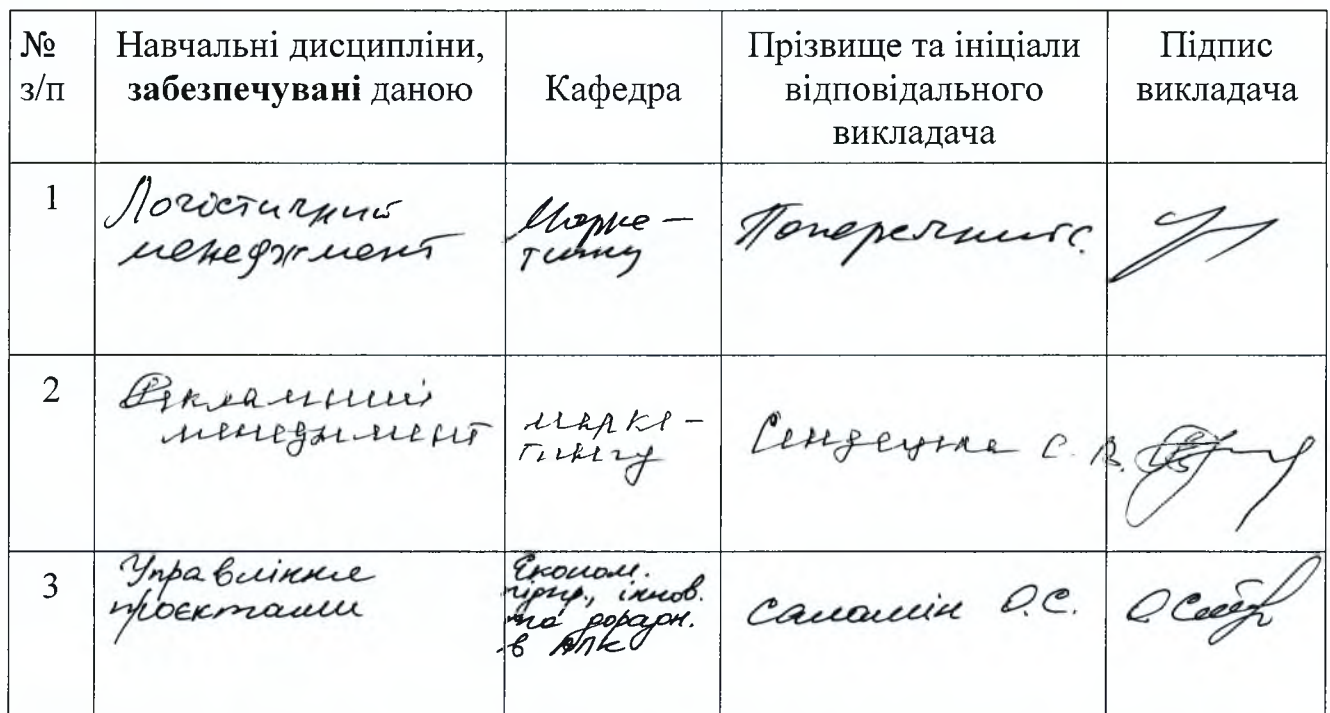 № з/п
Навчальні дисципліни,
забезпечувані даною
Кафедра
Прізвище та ініціали
відповідального
викладача
Підпис
викладача
1
Логістичний
менеджмент
Марке-
тингу
2
Рекламний
менеджмент
марке-
тингу
Сендецька С. В.
3
Управління
проєктами
Економ.
підпр., іннов.
та дорадн.
в АПК
Саламін О.С.